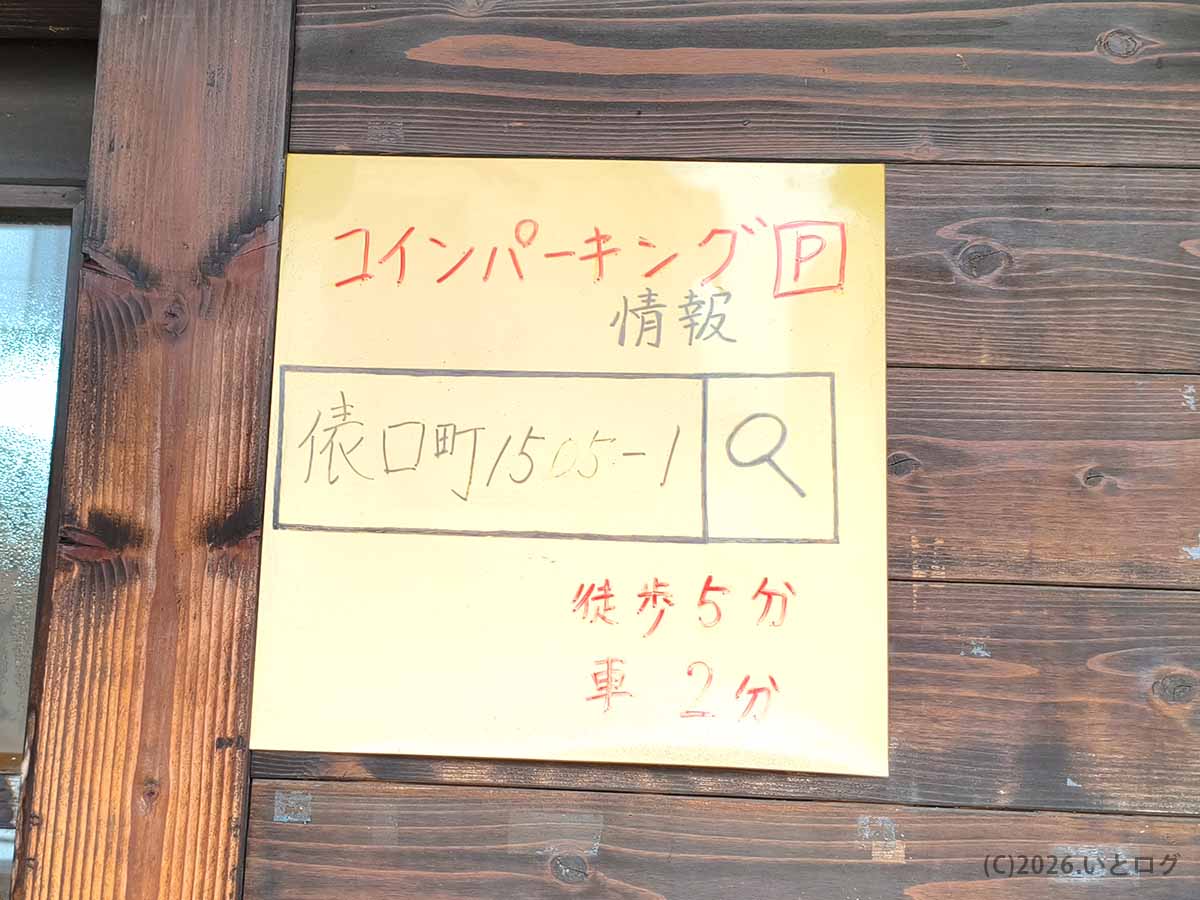 コインパーキング P
情報
俵口町1505-1
徒歩5分
車 2分
(C)2026.いとログ